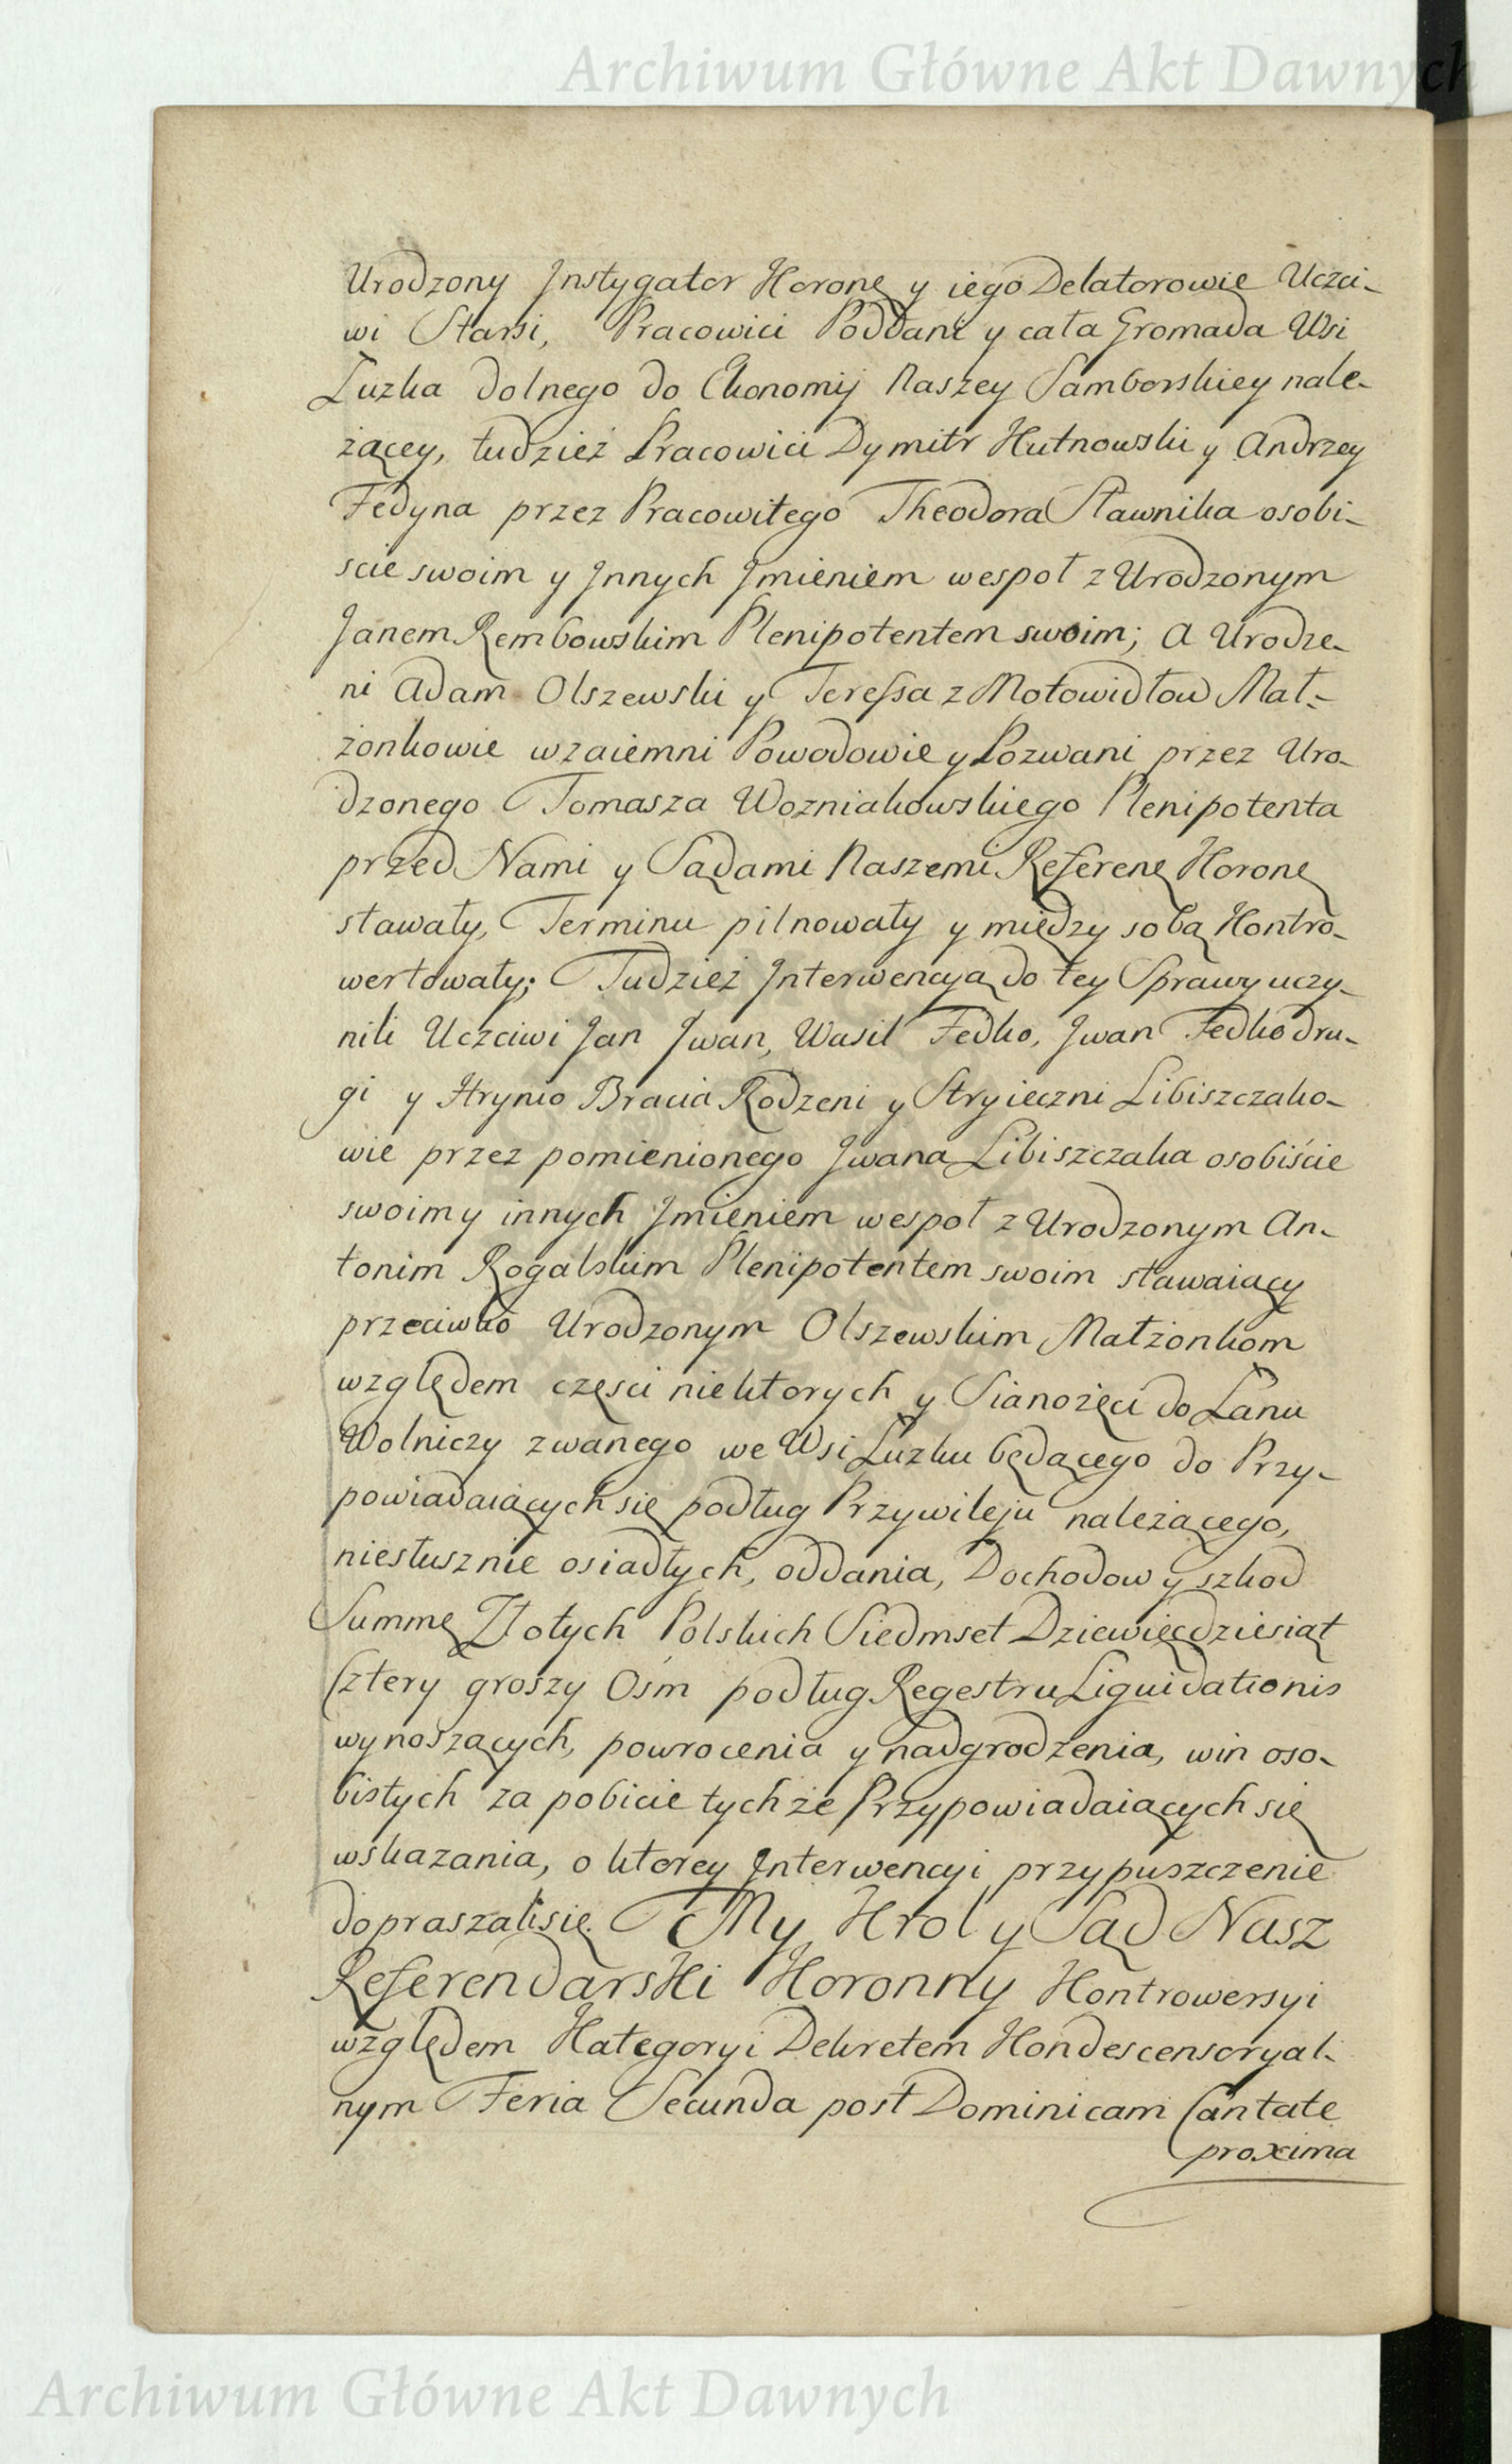 Archiwum Główne Akt Dawnych
Urodzony Instygator Koronę y iego Delatorowie Uczci-
wi Starsi, Pracowici Poddani y cała Gromada Wsi
Łużka dolnego do Ekonomij Naszey Samborskiey nale-
żącey, tudzież Pracowici Dymitr Hutnowski y Andrzey
Fedyna przez Pracowitego Theodora Sławnika osobi-
scie swoim y Innych Imieniem wespoł z Urodzonym
Janem Rembowskim Plenipotentem swoim; a Urodze-
ni Adam Olszewski y Teressa z Mołowidłow Mał-
żonkowie wzaiemni Powodowie y Pozwani przez Uro-
dzonego Tomasza Wozniakowskiego Plenipotenta
przed Nami y Sądami Naszemi Referenę Koronę
stawały, Terminu pilnowały y między sobą Kontro-
wertowały; Tudzież Interwencyą do tey Sprawy uczy-
nili Uczciwi Jan Jwan, Wasil Fedko, Jwan Fedko dru-
gi y Hrynio Bracia Rodzeni y Stryieczni Libiszczako-
wie przez pomienionego Jwana Libiszczaka osobiście
swoim y innych Imieniem wespoł z Urodzonym An-
tonim Rogalskim Plenipotentem swoim stawaiący
przeciwko Urodzonym Olszewskim Małżonkom
względem częsci niektorych y Sianożęci do Łanu
Wolniczy zwanego we Wsi Łużku będącego do Przy-
powiadaiących się podług Przywileju należącego,
niesłusznie osiadłych, oddania, Dochodow y szkod
Summę Złotych Polskich Siedmset Dziewięcdziesiąt
Cztery groszy Ośm podług Regestru Liquidationis
wynoszących, powrocenia y nadgrodzenia, win oso-
bistych za pobicie tychże Przypowiadaiących się
wskazania, o ktorey Interwencyi przypuszczenie
dopraszali się. My Krol y Sąd Nasz
Referendarski Koronny Kontrowersyi
względem Kategoryi Dekretem Kondescensoryal-
nym Feria Secunda post Dominicam Cantate
proxima
Archiwum Główne Akt Dawnych